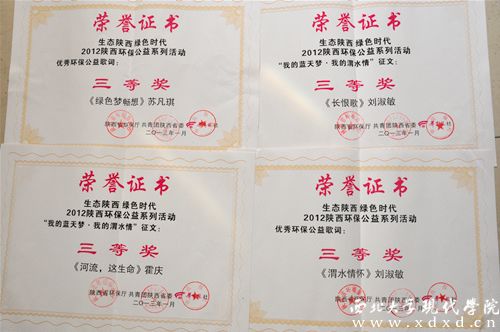 荣誉证书
生态陕西 绿色时代
2012陕西环保公益系列活动
优秀环保公益歌词：
三等奖
《绿色梦畅想》苏凡琪
陕西省环保厅 共青团陕西省委
二〇一三年一月
荣誉证书
生态陕西 绿色时代
2012陕西环保公益系列活动
“我的蓝天梦·我的渭水情”征文：
三等奖
《长恨歌》刘淑敏
陕西省环保厅 共青团陕西省委
二〇一三年一月
荣誉证书
生态陕西 绿色时代
2012陕西环保公益系列活动
“我的蓝天梦·我的渭水情”征文：
三等奖
《河流，这生命》霍庆
陕西省环保厅 共青团陕西省委
二〇一三年一月
荣誉证书
生态陕西 绿色时代
2012陕西环保公益系列活动
优秀环保公益歌词：
三等奖
《渭水情怀》刘淑敏
陕西省环保厅 共青团陕西省委
西北大学现代学院
www.xdxd.cn